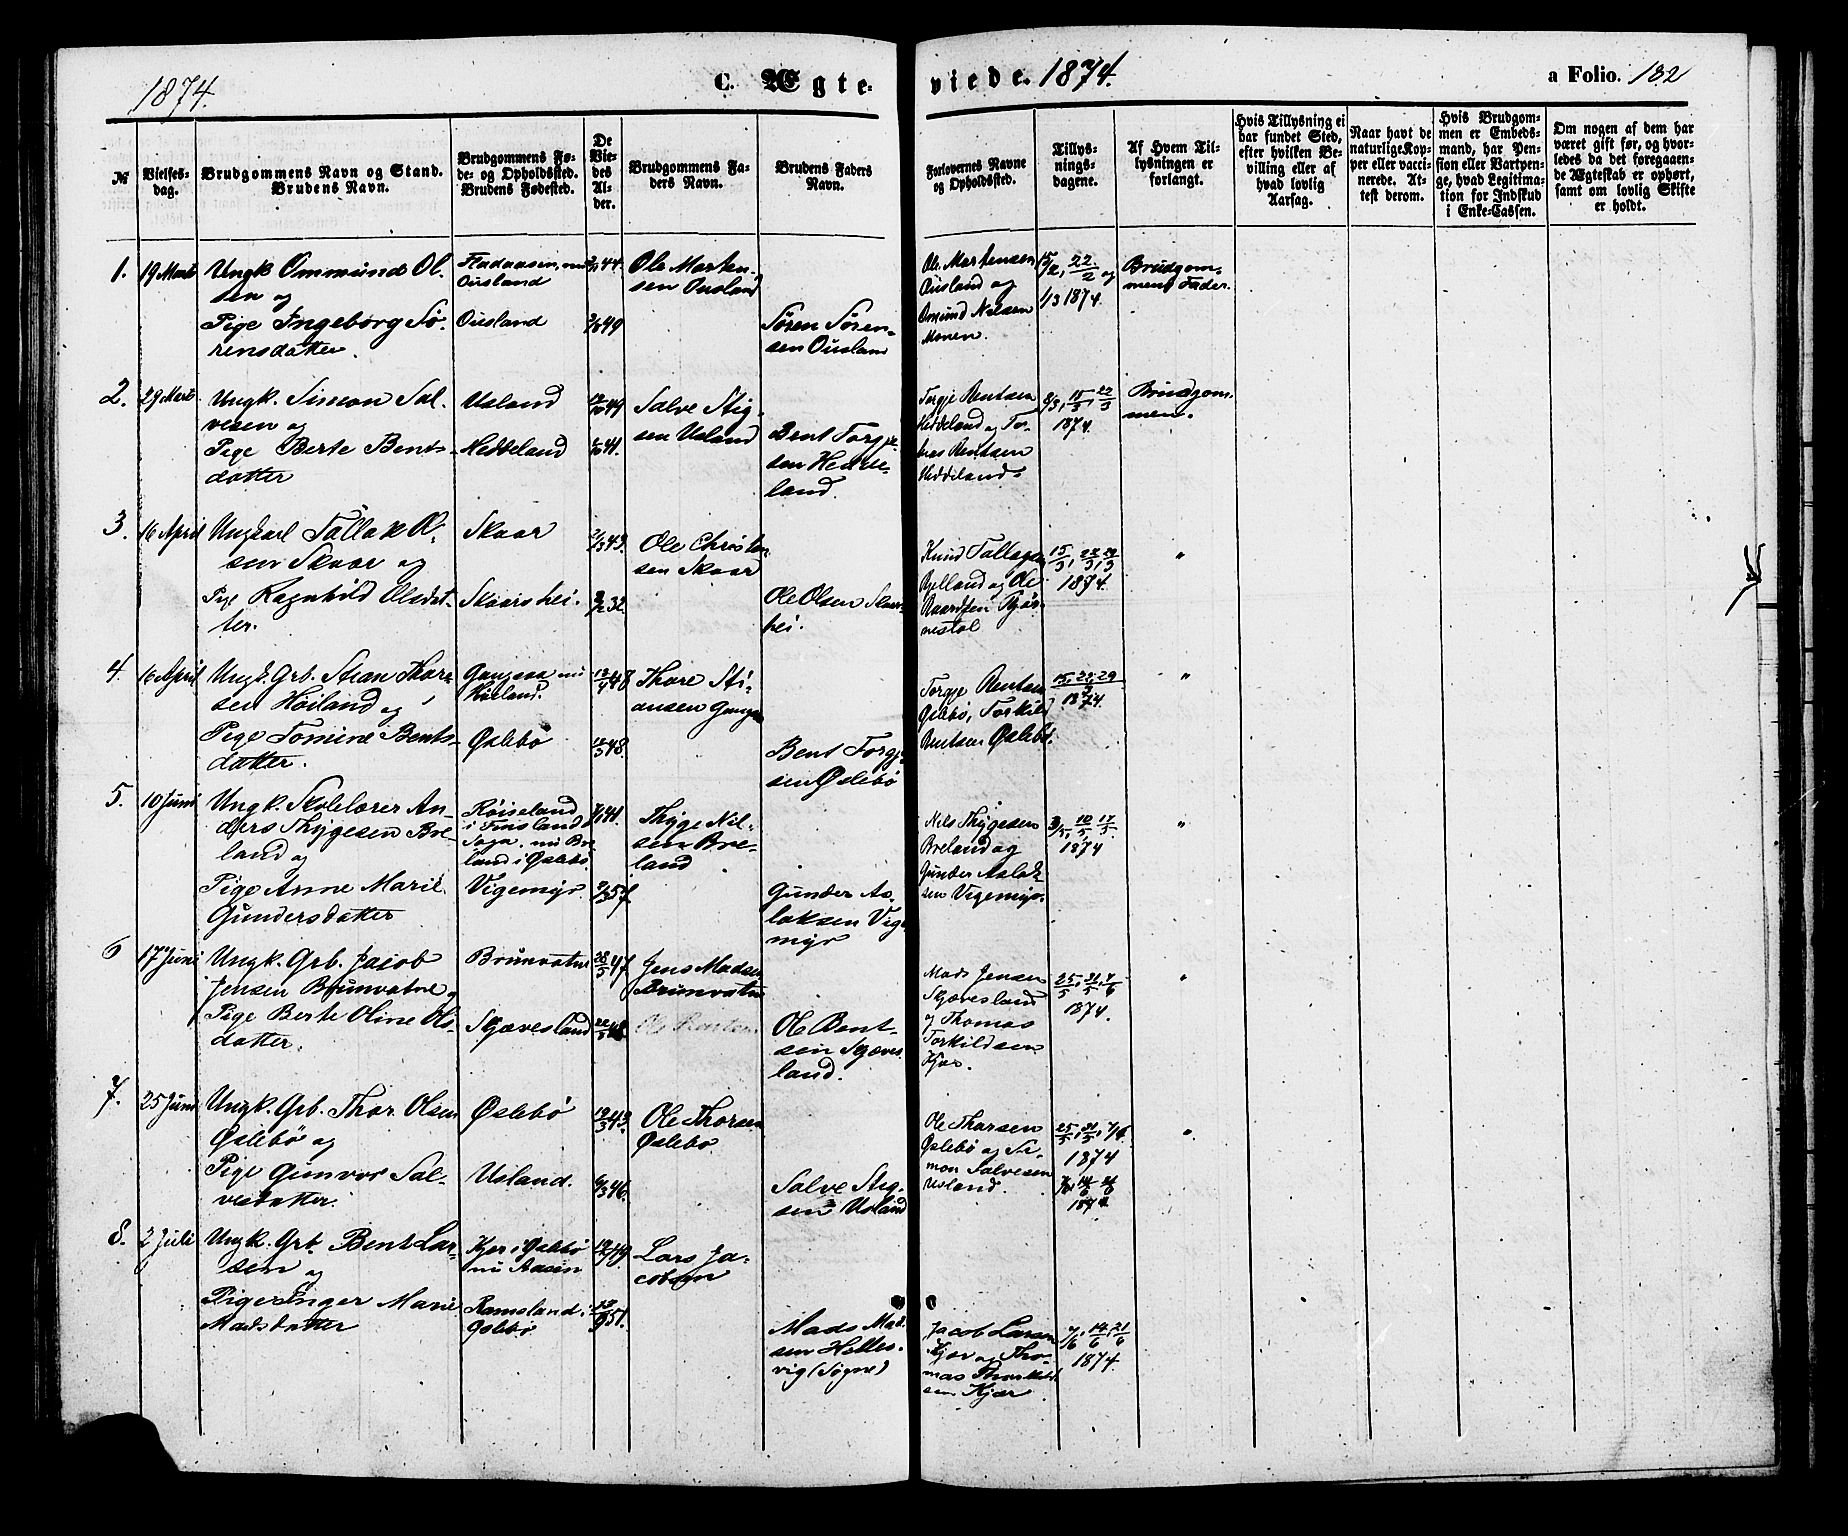 1874.
C. Ægte-
viede. 1874.
a Folio. 182
№
Vielses-
dag.
Brudgommens Navn og Stand.
Brudens Navn.
Brudgommens Fø-
de- og Opholdssted.
Brudens Fødested.
De
Vie-
des
Al-
der.
Brudgommens Fa-
ders Navn.
Brudens Faders
Navn.
Forlovernes Navne
og Opholdssted.
Tillys-
nings-
dagene.
Af Hvem Til-
lysningen er
forlangt.
Hvis Tillysning ei
har fundet Sted,
efter hvilken Be-
villing eller af
hvad lovlig
Aarsag.
Naar havt de
naturlige Kop-
per eller vacci-
nerede. At-
test derom.
Hvis Brudgom-
men er Embeds-
mand, har Pen-
sion eller Vartpen-
ge, hvad Legitima-
tion for Indskud
i Enke-Cassen.
Om nogen af dem har
været gift før, og hvor-
ledes da det foregaaen-
de Ægteskab er ophørt,
samt om lovlig Skifte
er holdt.
1.
19 Marts
Ungk Ommund Ol-
sen og
Pige Ingeborg Sø-
rensdatter.
Ousland
Ousland
44.
49
Ole Morten-
sen Ousland
Søren Søren-
sen Ousland
Ole Mortensen
Ousland og
Omund Nilsen
Monen.
15/2, 22/2 og
1/3 1874.
Brudgom-
mens Fader.
2.
29 Marts
Ungk. Simon Sal-
vesen og
Pige Berte Bents-
datter
Usland
Heddeland
49
41.
Salve Stig-
sen Usland
Bent Torgje
sen Hedde-
land.
Torgje Bentsen
Heddeland og To-
Bentsen
Heddeland.
8/3, 15/3, 22/3
1874.
Brudgom-
men.
3.
16 April
Ungkarl Tallak Ol-
sen Skaar og
Pige Ragnhild Olsdat-
ter.
Skaar
Skaarshei.
43.
32.
Ole Christen
sen Skaar
Ole Olsen Skaars-
hei.
Knud Tallagsen
og Ole
15/3, 22/3, 29/3
1874.
"
4.
16 April
Ungk. Grb. Stian Thor-
sen Høiland og
Pige Tomine Bents-
datter.
Gangsaa nu
Høiland.
Øslebø
48
12/3 48.
Thore Sti-
ansen Gangsaa
Bent Torgje
sen Øslebø
Torgje Bentsen
Øslebø, Torkild
Bentsen Øslebø.
15, 22, 29/3
1874.
"
5.
10 Juni
Ungk. Skolelærer An-
ders Thygesen Bre-
land og
Pige Anne Marie
Gundersdatter
Røiseland
i Finsland
Sogn, nu Bre-
land i Øslebø
Vigemyr.
41.
57.
Thyge Nil-
sen Bre-
land
Gunder As-
laksen Vige
myr
Nils Thygesen
Breland og
Gunder Aslak-
sen Vigemyr.
3/5, 10/5, 17/5
1874
"
6
17 Juni
Ungk. Grb. Jacob
Jensen Brunvatne og
Pige Berte Oline Ols-
datter.
Brunvatne
Skjævesland
28/5 47.
48
Jens Madsen
Brunvatne
Ole Bentsen
Ole Bent-
sen Skjæves-
land.
Mads Jensen
Skjævesland
og Thomas
Torkildsen
Kjær.
25/5, 31/5, 7/6
1874.
"
7.
25 Juni
Ungk. Grb. Thor Olsen
Øslebø og
Pige Gunvor Sal-
vesdatter.
Øslebø
Usland.
43.
46.
Ole Thorsen
Øslebø.
Salve Stig-
sen Usland
Ole Thorsen
Øslebø og Si-
mon Salvesen
Usland.
25/5, 31/5, 7/6.
1874
7/6, 14/6, 21/6
1874
"
8.
2 Juli
Ungk. Grb. Bent Lar-
sen og
Pige Inger Marie
Madsdatter
Kjær i Øslebø
nu Aasen
Ramsland i
Øslebø
49.
13/9 51.
Lars Ja-
cobsen
Mads Mad-
sen Helles-
vig (Søgne)
Jacob Larsen
Kjær og Tho-
mas Thorkild-
sen Kjær.
7/6, 14/6, 21/6
1874.